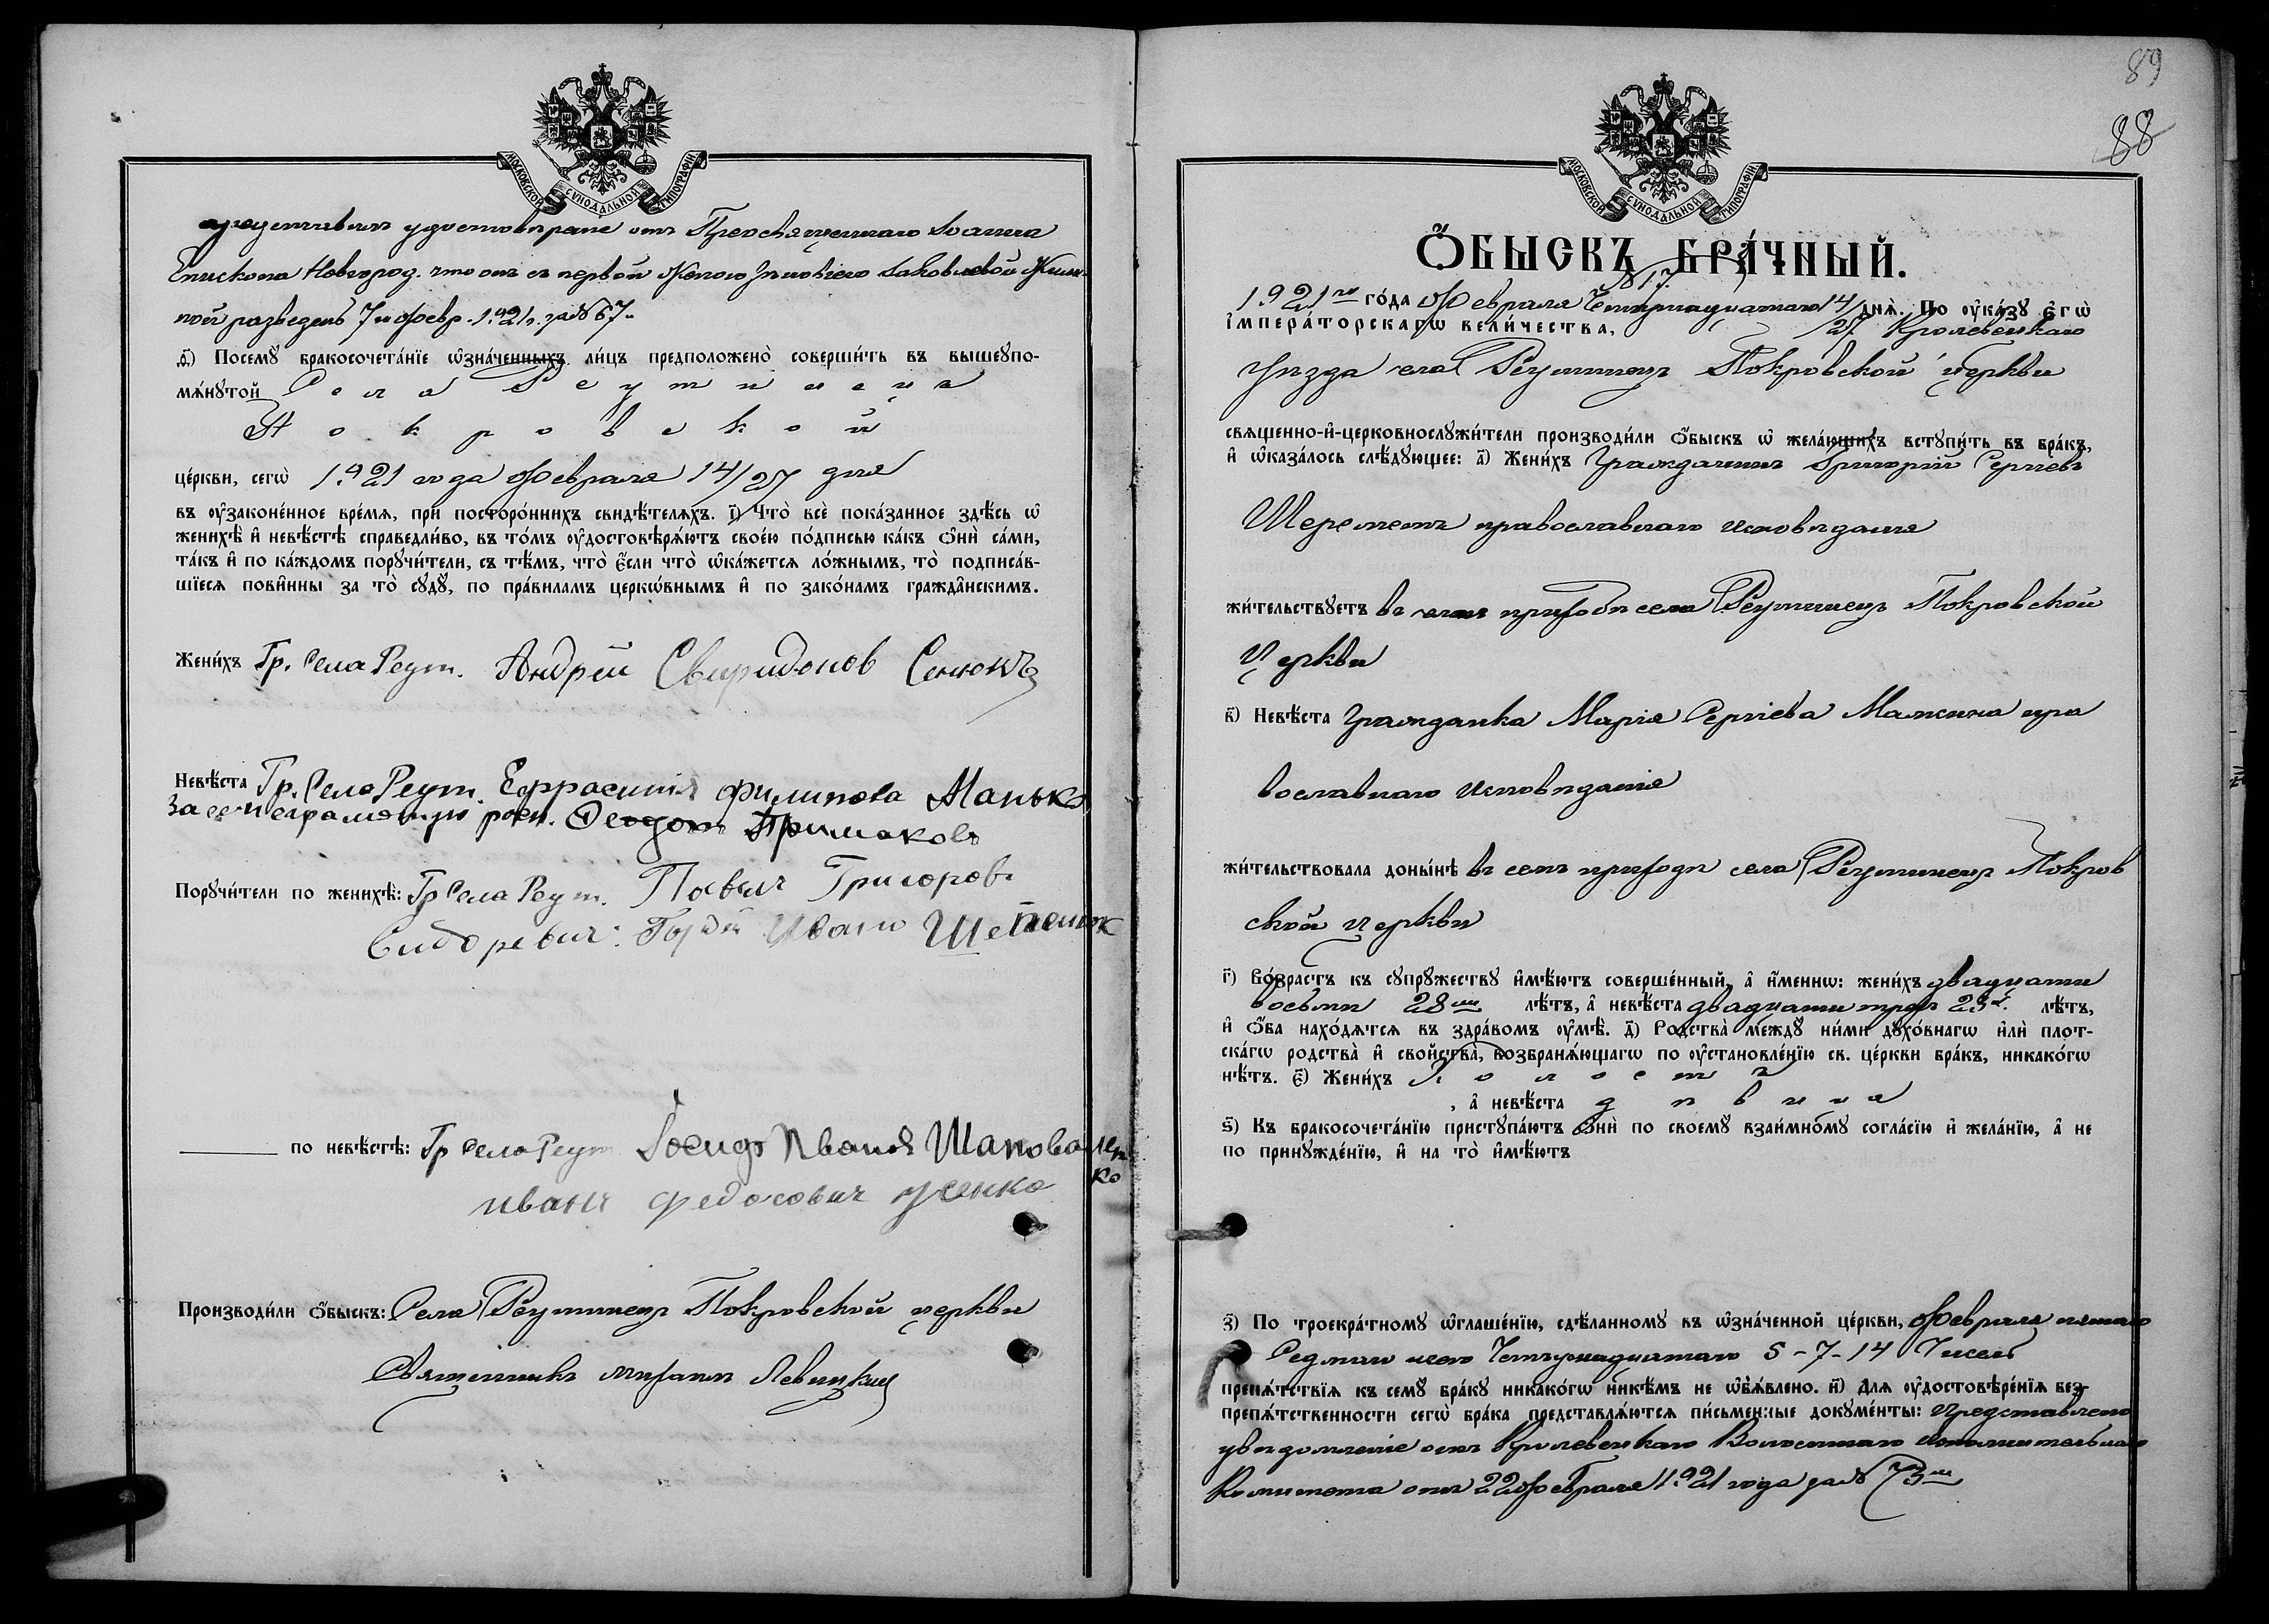 МОСКОВСКОЙ СѴНОДАЛЬНОЙ ТИПОГРАФІИ
удостовѣреніе отъ Преосвященнаго Іоанна
Епископа Новгород. что онъ съ первой женою Яковлевой
разведенъ 7 Февр. 1921 г. за № 67
д҃і) Посемꙋ̀ бракосочета́нїе ѡ҆зна́ченныхъ ли́цъ предположено̀ соверши́ть въ вышеꙋпо-
мѧ́нꙋтой Села Реутинецъ
Покровской
це́ркви, сегѡ̀ 1921 года Февраля 14/27 дня
въ ᲂу҆законе́нное вре́мѧ, при посторо́ннихъ свидѣ́телѧхъ. і҃) Что̀ всѐ пока́занное здѣ́сь ѡ҆
женихѣ̀ и҆ невѣ́стѣ справедли́во, въ то́мъ ᲂу҆достовѣрѧ́ютъ свое́ю по́дписью ка́къ ѻ҆нѝ са́ми,
та́къ и҆ по ка́ждомъ порꙋчи́тели, съ тѣ́мъ, что̀ є҆́сли что̀ ѡ҆ка́жетсѧ ло́жнымъ, то̀ подписа́в-
шїесѧ пови́нны за то̀ сꙋдꙋ̀, по пра́виламъ церкѡ́внымъ и҆ по зако́намъ гражда̑нскимъ.
Жени́хъ Гр. Села Реут. Андрей Свиридонов Сенюкъ
Невѣ́ста Гр. Села Реут. Ефросинія Филипова Манько
За неграмотную росп. Ѳеодотъ Примаковъ
Порꙋчи́тели по женихѣ̀: Гр Села Реут. Павелъ Григоров
Сидоревич. Гордѣй Ивано
по невѣ́стѣ: Гр Села Реут Іосифъ Ивановъ Шаповален
ко
иванъ федосович усенко
Производи́ли ѻ҆́быскъ: Села Реутинецъ Покровской церкви
Священникъ Михаилъ Левицкій
89
88
МОСКОВСКОЙ СѴНОДАЛЬНОЙ ТИПОГРАФІИ
Ѻ҆́БЫСКЪ БРА́ЧНЫЙ.
№ 17.
1921го го́да Февраля Четырнадцатаго 14/ днѧ̀. По ᲂу҆ка́зꙋ Є҆гѡ̀
І҆мпера́торскагѡ вели́чества, 27 Кролевецкаго
уѣзда села Реутинецъ Покровской церкви
свѧщенно-и҆-церковнослꙋжи́тели производи́ли ѻ҆́быскъ ѡ҆ жела́ющихъ встꙋпи́ть въ бра́къ,
и҆ ѡ҆каза́лось слѣ́дꙋющее: а҃) Жени́хъ Гражданинъ Григорій Сергіевъ
Шереметъ православнаго исповѣданія
жи́тельствꙋетъ въ приходѣ села Реутинецъ Покровской
Церкви
в҃) Невѣ́ста Гражданка Марія Сергіева Мамкина пра
вославнаго исповѣданія
жи́тельствовала доны́нѣ въ семъ приходѣ села Реутинецъ Покров
ской церкви
г҃) Во́зрастъ къ сꙋпрꙋ́жествꙋ и҆мѣ́ютъ соверше́нный, а҆ и҆́меннѡ: жени́хъ двадцати
восьми 28ми лѣ́тъ, а҆ невѣ́ста двадцати трехъ 23х. лѣ́тъ,
и҆ ѻ҆́ба нахо́дѧтсѧ въ здра́вомъ ᲂу҆мѣ̀. д҃) Родства̀ междꙋ̀ ни́ми дꙋхо́внагѡ и҆лѝ плот-
ска́гѡ родства̀ и҆ свойства̀, возбранѧ́ющагѡ по ᲂу҆становле́нїю св. це́ркви бра́къ, никако́гѡ
нѣ́тъ. є҃) Жени́хъ Холостъ
, а҆ невѣ́ста дѣвица
ѕ҃) Къ бракосочета́нїю пристꙋпа́ютъ ѻ҆нѝ по своемꙋ̀ взаи́мномꙋ согла́сїю и҆ жела́нїю, а҆ не
по принꙋжде́нїю, и҆ на то̀ и҆мѣ́ютъ
з҃) По троекра́тномꙋ ѡ҆глаше́нїю, сдѣ́ланномꙋ въ ѡ҆зна́ченной це́ркви, Февраля пятаго
Седмаго Четырнадцатаго 5 - 7 - 14 Чиселъ
препѧ́тствїѧ къ семꙋ̀ бра́кꙋ никако́гѡ никѣ́мъ не ѡ҆б̾ѧ́влено. и҃) Для ᲂу҆достовѣре́нїѧ без-
препѧ́тственности сегѡ̀ бра́ка представлѧ́ютсѧ пи́сьменные докꙋме́нты: представлено
увѣдомленіе отъ Кролевецкаго Волостнаго Исполнительнаго
Комитета отъ 22 Февраля 1921 года за № 73